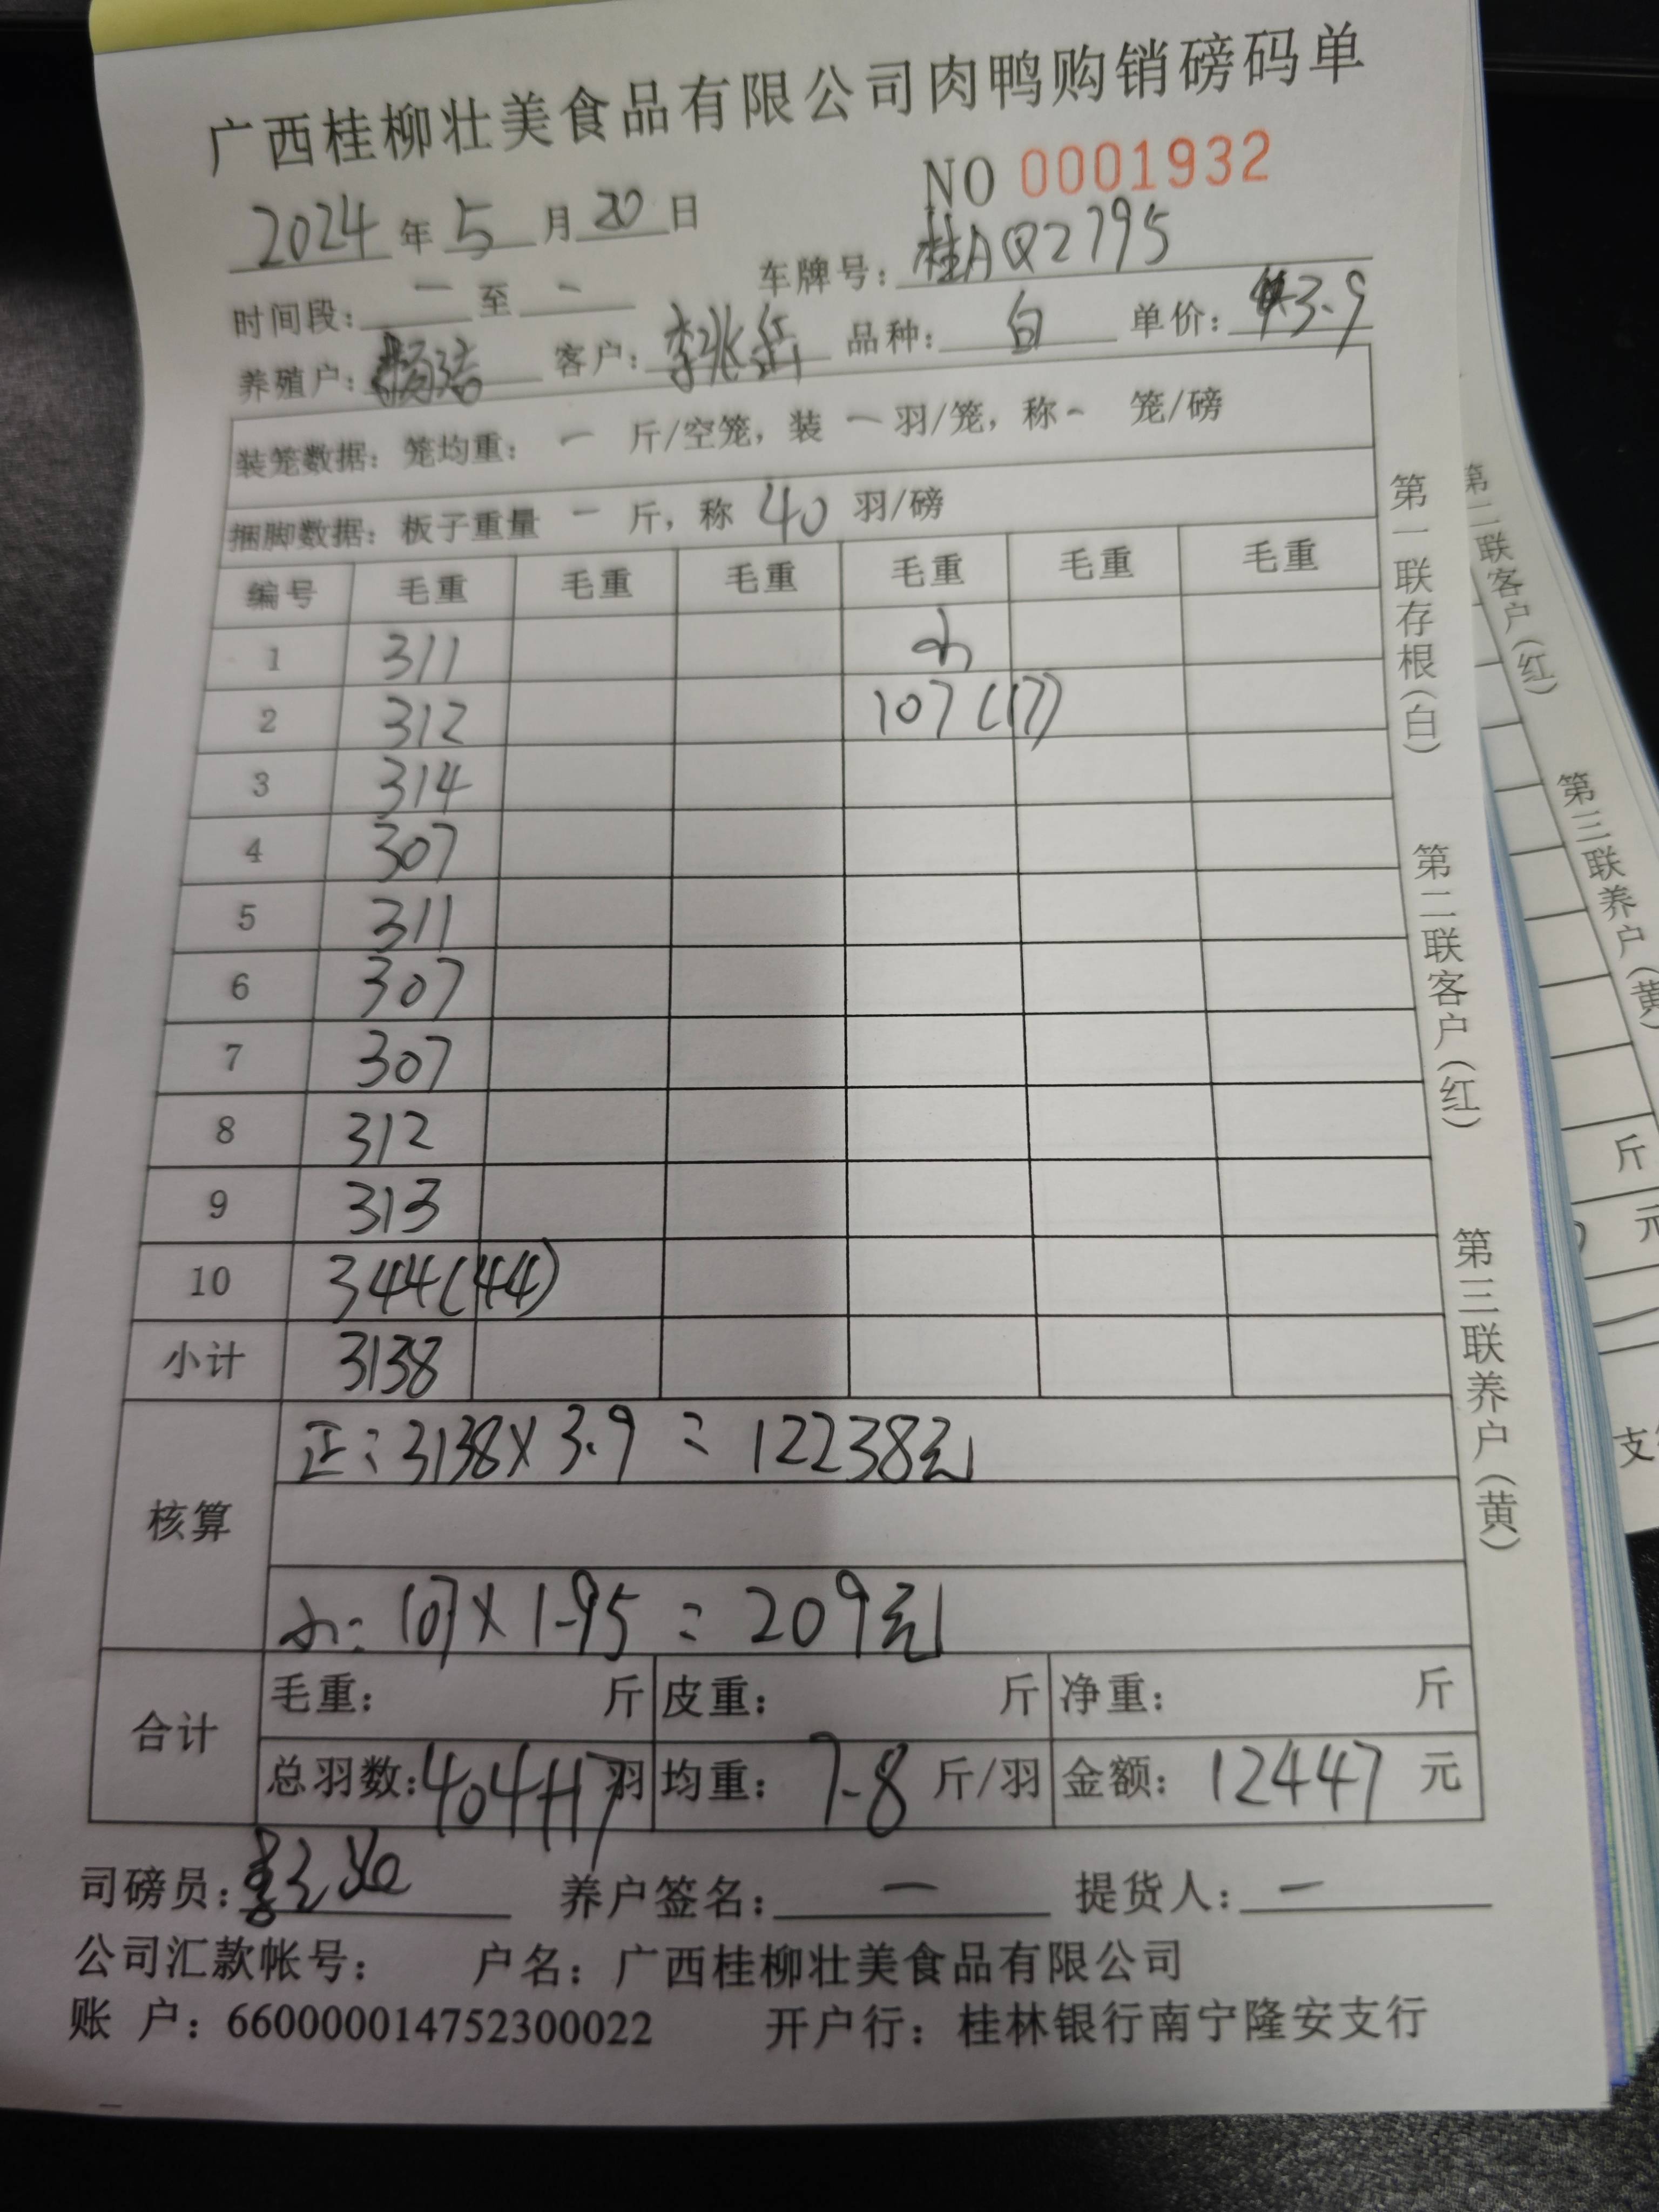 广西桂柳壮美食品有限公司肉鸭购销磅码单
NO 0001932
2024年5月20日
时间段：一至一 车牌号：桂AQ2795
养殖户：杨洁 客户： 品种：白 单价：3.9
装笼数据：笼均重：一斤/空笼，装一羽/笼，称一笼/磅
捆脚数据：板子重量一斤，称40羽/磅
编号 毛重 毛重 毛重 毛重 毛重 毛重
1 311 小
2 312 107(17)
3 314
4 307
5 311
6 307
7 307
8 312
9 313
10 344(44)
小计 3138
核算
正：3138×3.9=12238元
小：107×1.95=209元
合计
毛重： 斤 皮重： 斤 净重： 斤
总羽数：404+17羽 均重：7.8斤/羽 金额：12447元
司磅员： 养户签名：一 提货人：一
公司汇款帐号： 户名：广西桂柳壮美食品有限公司
账 户：660000014752300022 开户行：桂林银行南宁隆安支行
第一联存根（白）
第二联客户（红）
第三联养户（黄）
第二联客户（红）
第三联养户（黄）
斤
元
支